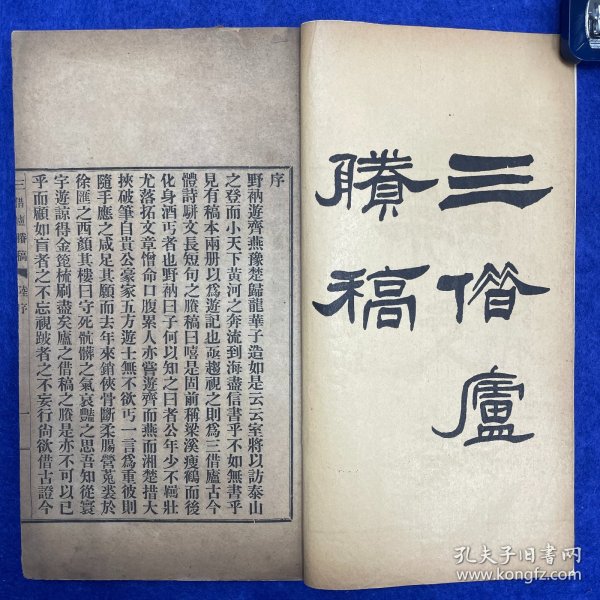 三借廬
賸稿
序
野衲遊齊燕豫楚歸龍華子造如是云云室將以訪泰山
之登而小天下黃河之奔流到海盡信書乎不如無書乎
見有稿本兩册以爲遊記也亟趨視之則爲三借廬古今
體詩駢文長短句之賸稿曰嘻是固前稱梁溪瘦鶴而後
化身酒丐者也野衲曰子何以知之曰者公年少不羈壯
尤落拓文章憎命口腹累人亦嘗遊齊而燕而湘楚措大
挾破筆自貴公豪家五方遊士無不欲丐一言爲重彼則
隨手應之咸足其願而去年來銷俠骨斷柔腸營菟裘於
徐匯之西顏其樓曰守死骯髒之氣哀豔之思吾知從寰
宇遊諒得金篦梳刷盡矣廬之借稿之賸是亦不可以已
乎而顧如盲者之不忘視跛者之不妄行尙欲借古證今
三借廬賸稿 陸序 一
孔夫子旧书网
www.kongfz.com